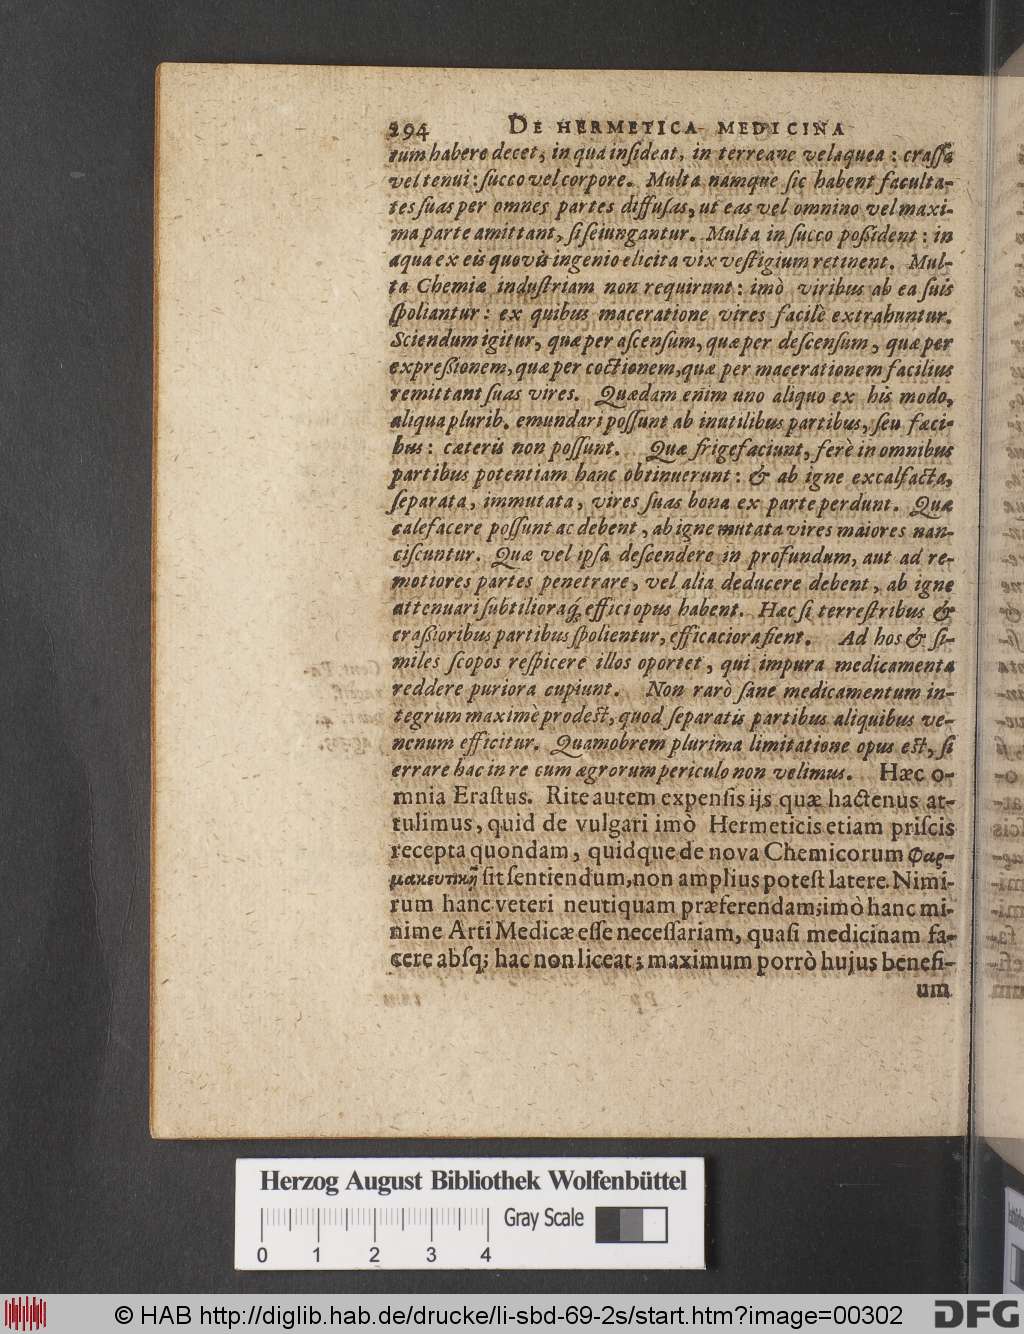 294 DE HERMETICA MEDICINA
rum habere decet, in qua insideat, in terreane vel aquea: crassa
vel tenui: succo vel corpore. Multa namque sic habent faculta-
tes suas per omnes partes diffusas, ut eas vel omnino vel maxi-
ma parte amittant, si seiungantur. Multa in succo poßident: in
aqua ex eis quovis ingenio elicita vix vestigium retinent. Mul-
ta Chemiæ industriam non requirunt: imò viribus ab ea suis
spoliantur: ex quibus maceratione vires facilè extrahuntur.
Sciendum igitur, quæ per ascensum, quæ per descensum, quæ per
expreßionem, quæ per coctionem, quæ per macerationem facilius
remittant suas vires. Quædam enim uno aliquo ex his modo,
aliqua plurib. emundari possunt ab inutilibus partibus, seu fæci-
bus: cæteris non possunt. Quæ frigefaciunt, ferè in omnibus
partibus potentiam hanc obtinuerunt: & ab igne excalfacta,
separata, immutata, vires suas bona ex parte perdunt. Quæ
calefacere possunt ac debent, ab igne mutata vires maiores nan-
ciscuntur. Quæ vel ipsa descendere in profundum, aut ad re-
motiores partes penetrare, vel alia deducere debent, ab igne
attenuari subtilioraq́; effici opus habent. Hæc si terrestribus &
craßioribus partibus spolientur, efficaciora fient. Ad hos & si-
miles scopos respicere illos oportet, qui impura medicamenta
reddere puriora cupiunt. Non rarò sane medicamentum in-
tegrum maximè prodest, quod separatis partibus aliquibus ve-
nenum efficitur. Quamobrem plurima limitatione opus est, si
errare hac in re cum ægrorum periculo non velimus. Hæc o-
mnia Erastus. Rite autem expensis ijs quæ hactenus at-
tulimus, quid de vulgari imò Hermeticis etiam priscis
recepta quondam, quidque de nova Chemicorum Φαρ-
μακευτικῇ sit sentiendum, non amplius potest latere. Nimi-
rum hanc veteri neutiquam præferendam; imò hanc mi-
nime Arti Medicæ esse necessariam, quasi medicinam fa-
cere absq; hac non liceat; maximum porrò hujus benefi-
um
Herzog August Bibliothek Wolfenbüttel
Gray Scale
0 1 2 3 4
© HAB http://diglib.hab.de/drucke/li-sbd-69-2s/start.htm?image=00302 DFG